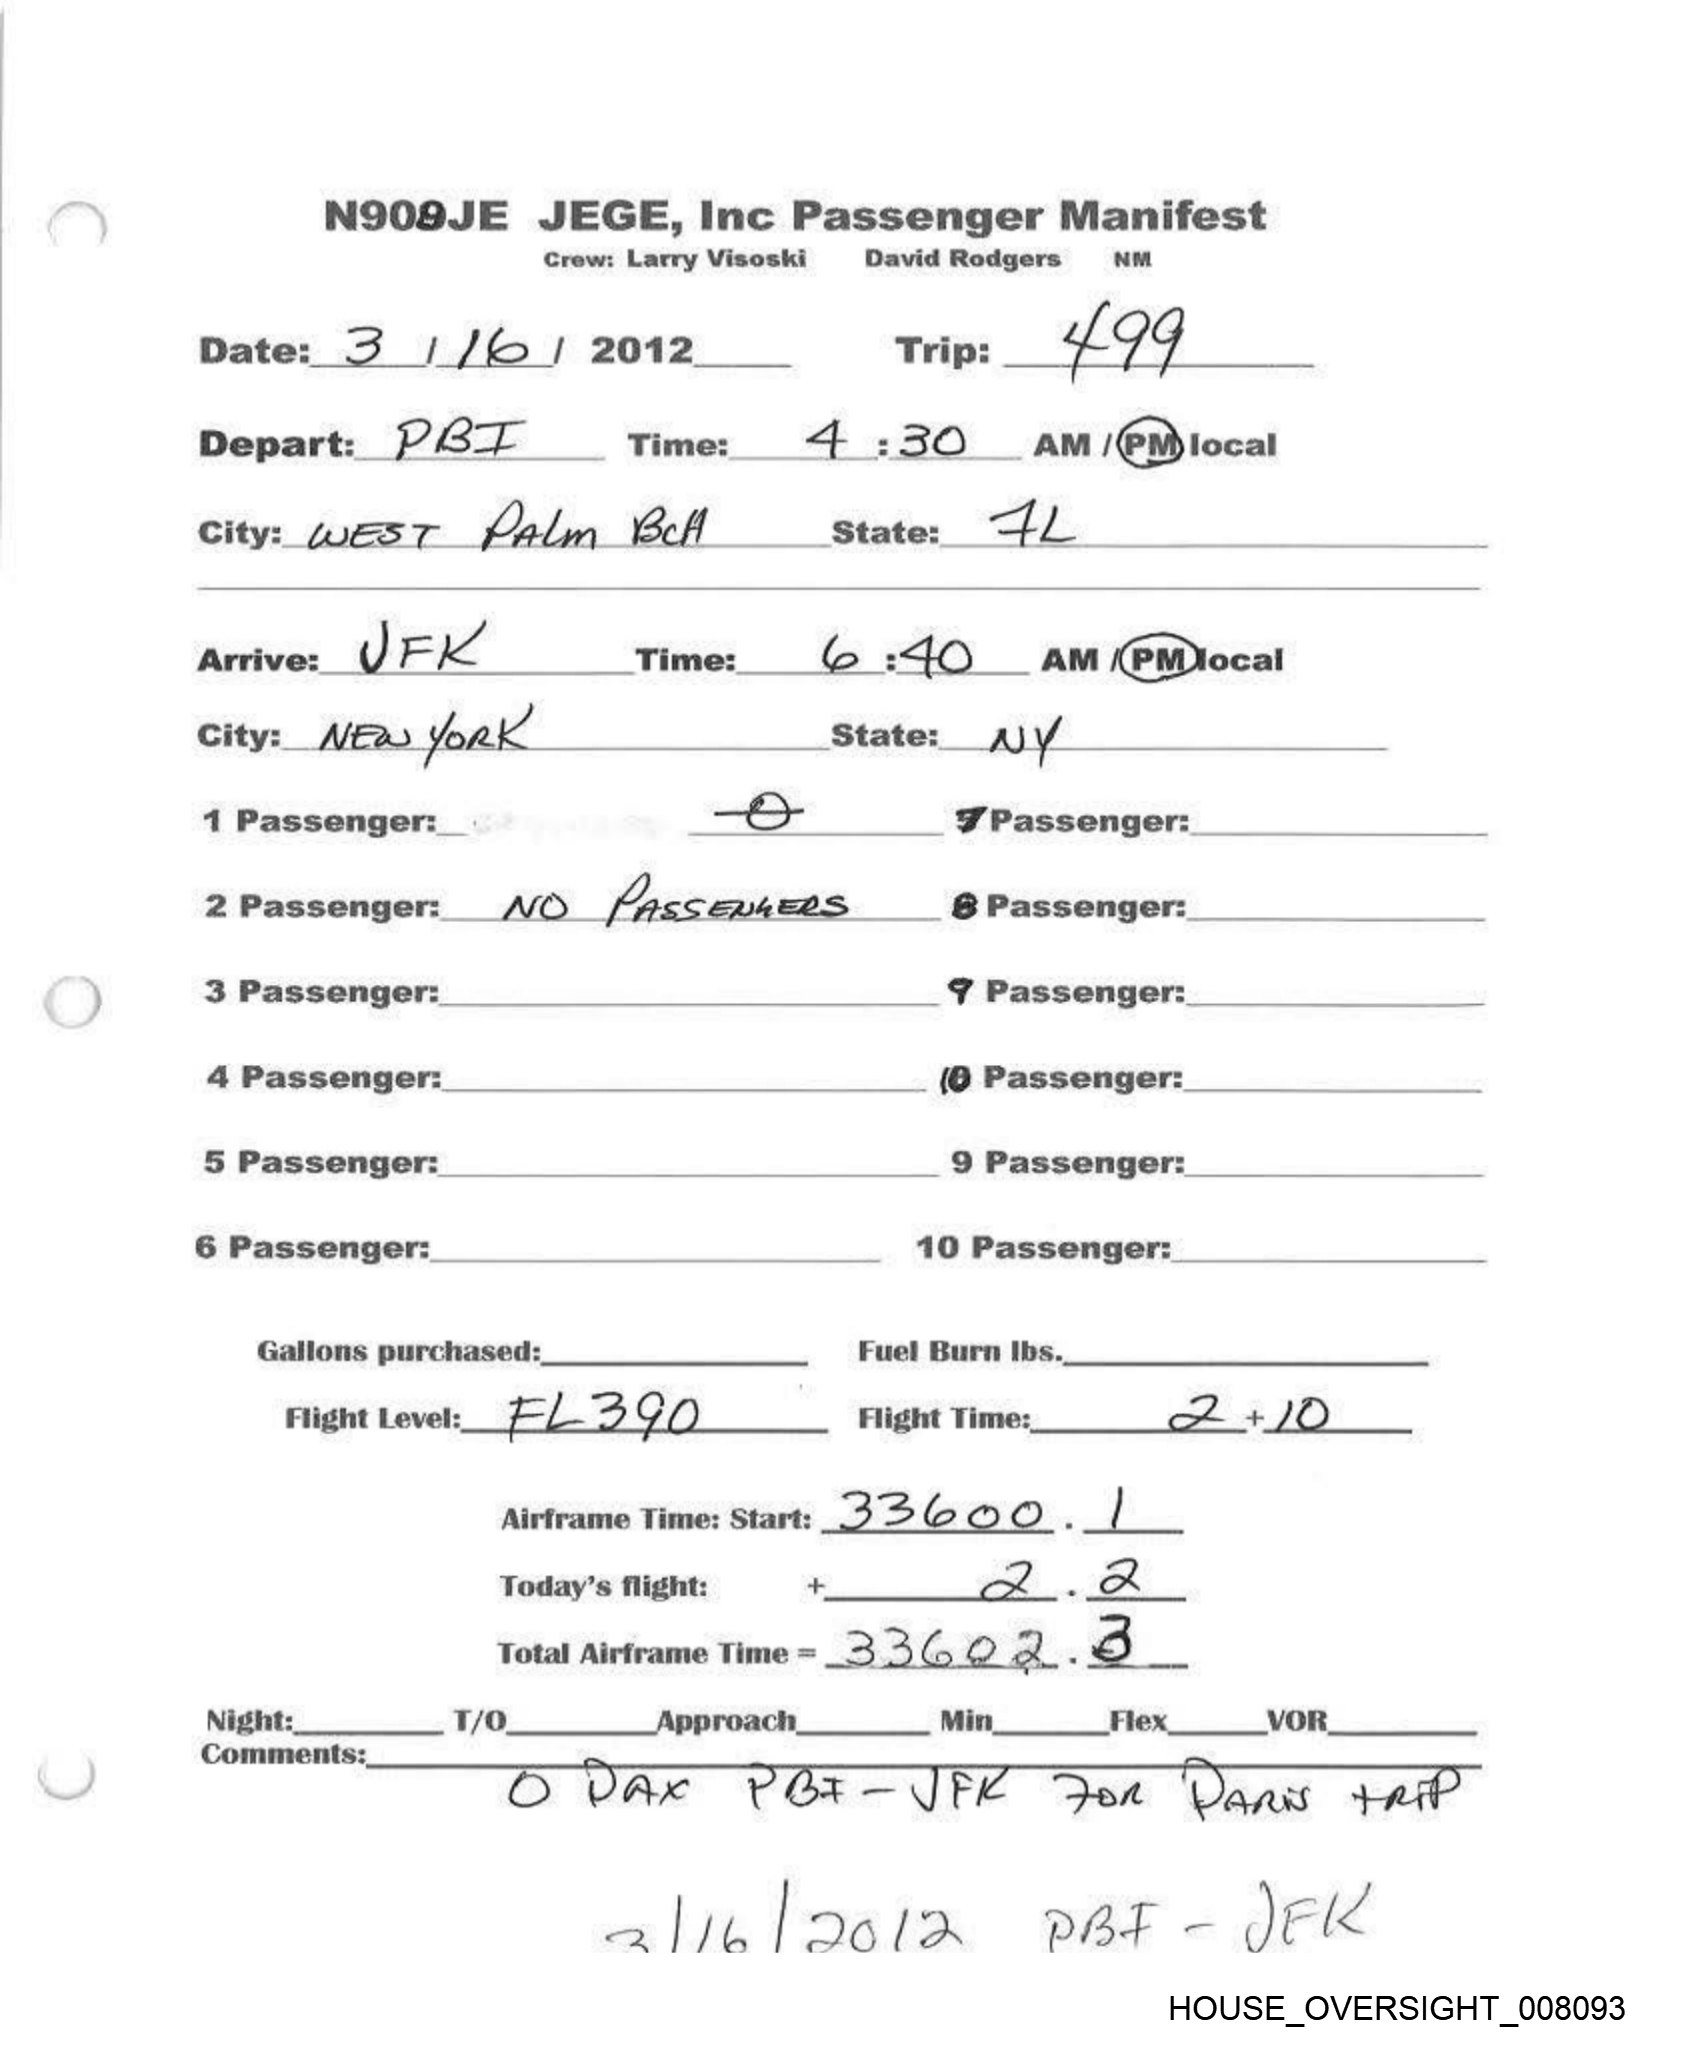 N908JE JEGE, Inc Passenger Manifest
Crew: Larry Visoski David Rodgers NM
Date: 3 / 16 / 2012 Trip: 499
Depart: PBI Time: 4 : 30 AM / PM local
City: WEST PAlm BcH State: FL
Arrive: JFK Time: 6 : 40 AM / PM local
City: NEW YORK State: NY
1 Passenger: 0 7 Passenger:
2 Passenger: NO PASSENGERS 8 Passenger:
3 Passenger: 9 Passenger:
4 Passenger: 10 Passenger:
5 Passenger: 9 Passenger:
6 Passenger: 10 Passenger:
Gallons purchased: Fuel Burn lbs.
Flight Level: FL390 Flight Time: 2 + 10
Airframe Time: Start: 33600 . 1
Today's flight: + 2 . 2
Total Airframe Time = 33602 . 3
Night: T/O Approach Min Flex VOR
Comments:
0 PAX PBI - JFK FOR PARIS TRIP
3/16/2012 PBI - JFK
HOUSE_OVERSIGHT_008093